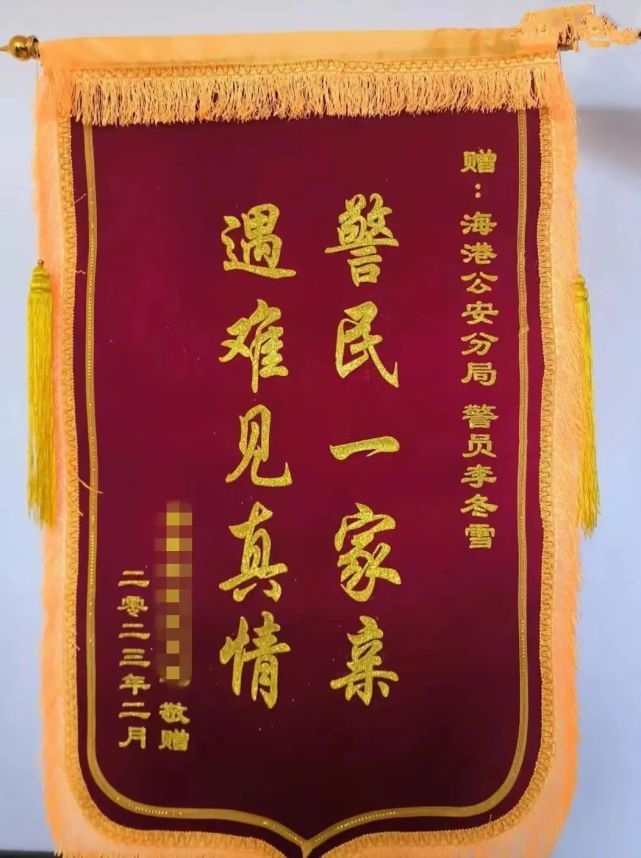 赠：海港公安分局 警员李冬雪
警民一家亲
遇难见真情
敬赠
二零二三年二月